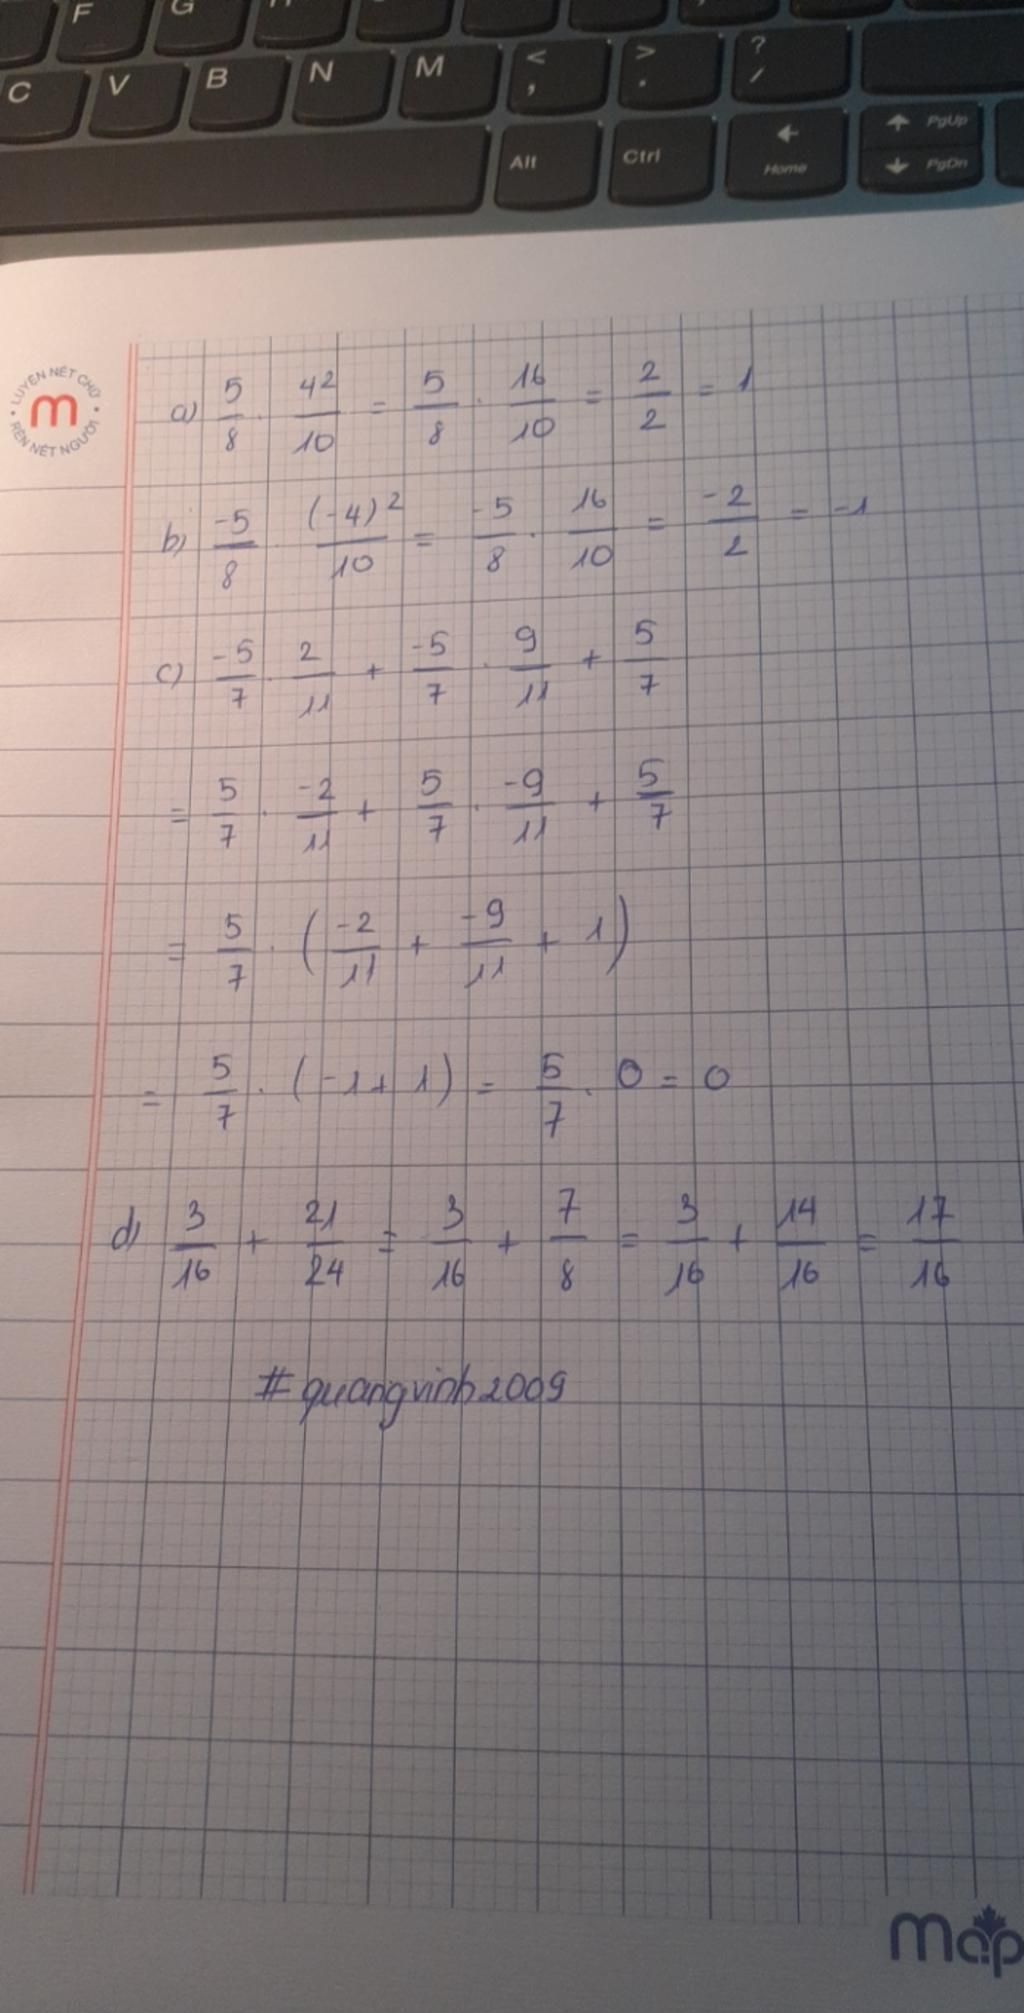 F G
C V B N M < , > . ? /
Alt Ctrl Home PgUp PgDn
LUYỆN NÉT CHỮ
m
RÈN NẾT NGƯỜI
a) 5/8 . 4²/10 = 5/8 . 16/10 = 2/2 = 1
b) -5/8 . (-4)²/10 = -5/8 . 16/10 = -2/2 = -1
c) -5/7 . 2/11 + -5/7 . 9/11 + 5/7
= 5/7 . -2/11 + 5/7 . -9/11 + 5/7
= 5/7 . (-2/11 + -9/11 + 1)
= 5/7 . (-1 + 1) = 5/7 . 0 = 0
d) 3/16 + 21/24 = 3/16 + 7/8 = 3/16 + 14/16 = 17/16
# quangvinh2009
map